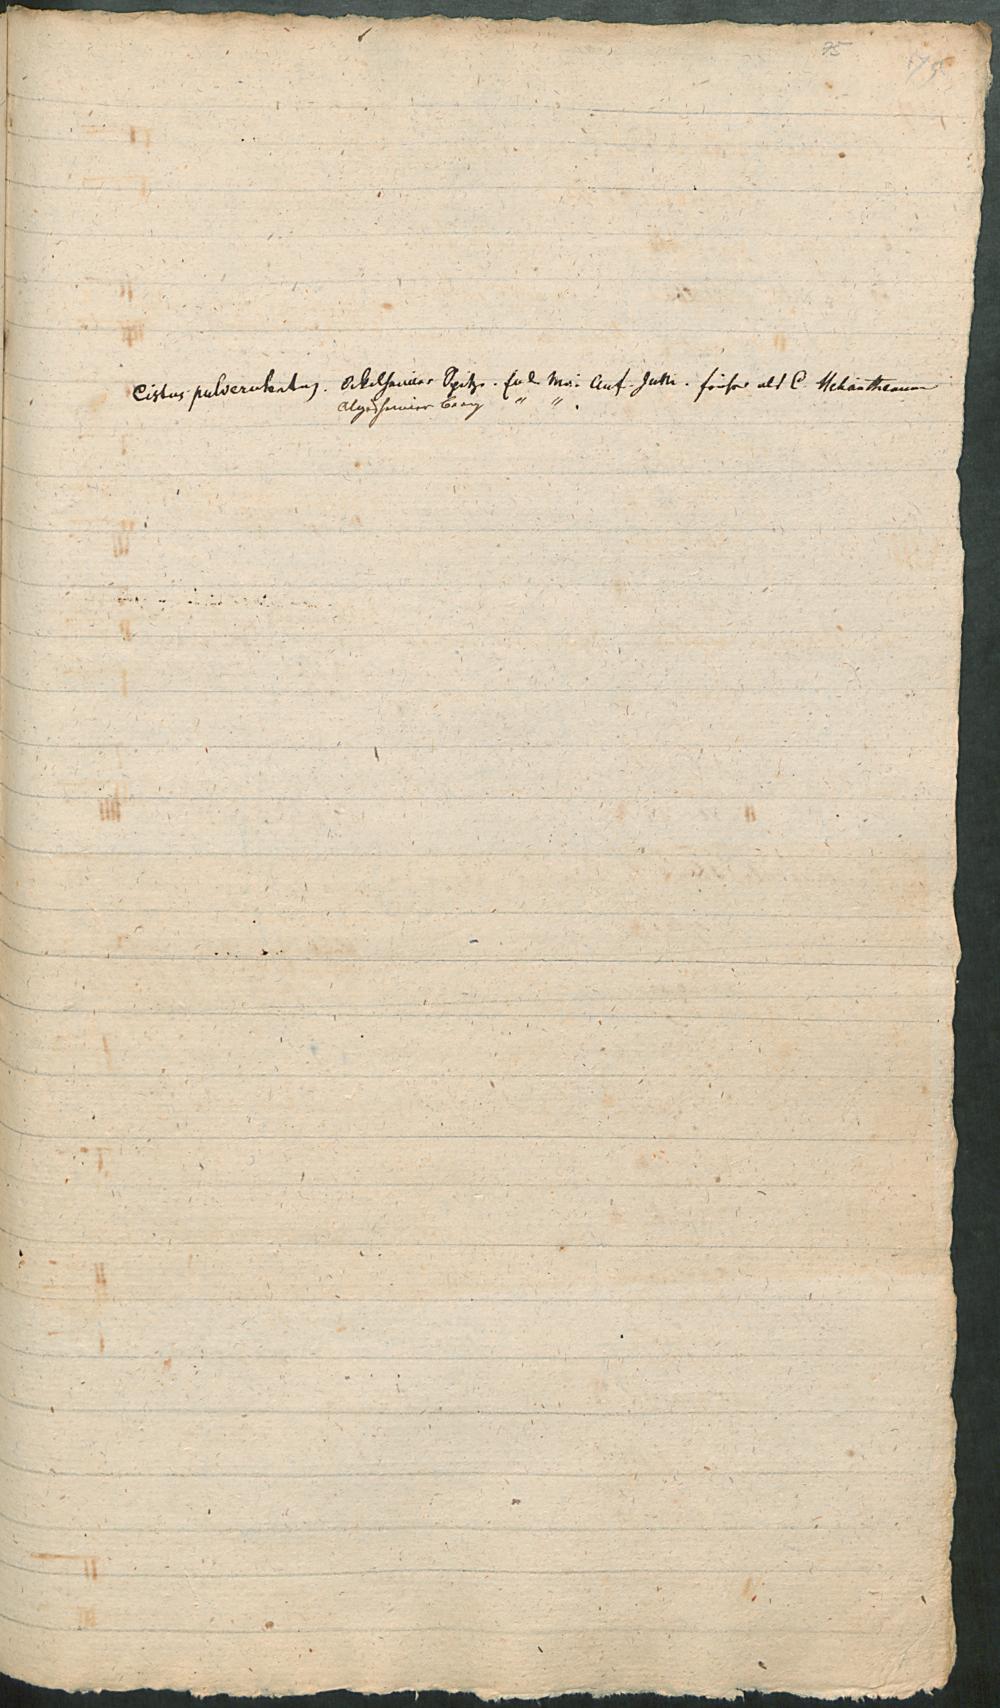 75
75
Cistus pulverulentus. Ockenheimer Spitze. End Mai. Anf. Juni. früher als C. Helianthemum
Algesheimer Berg " " .